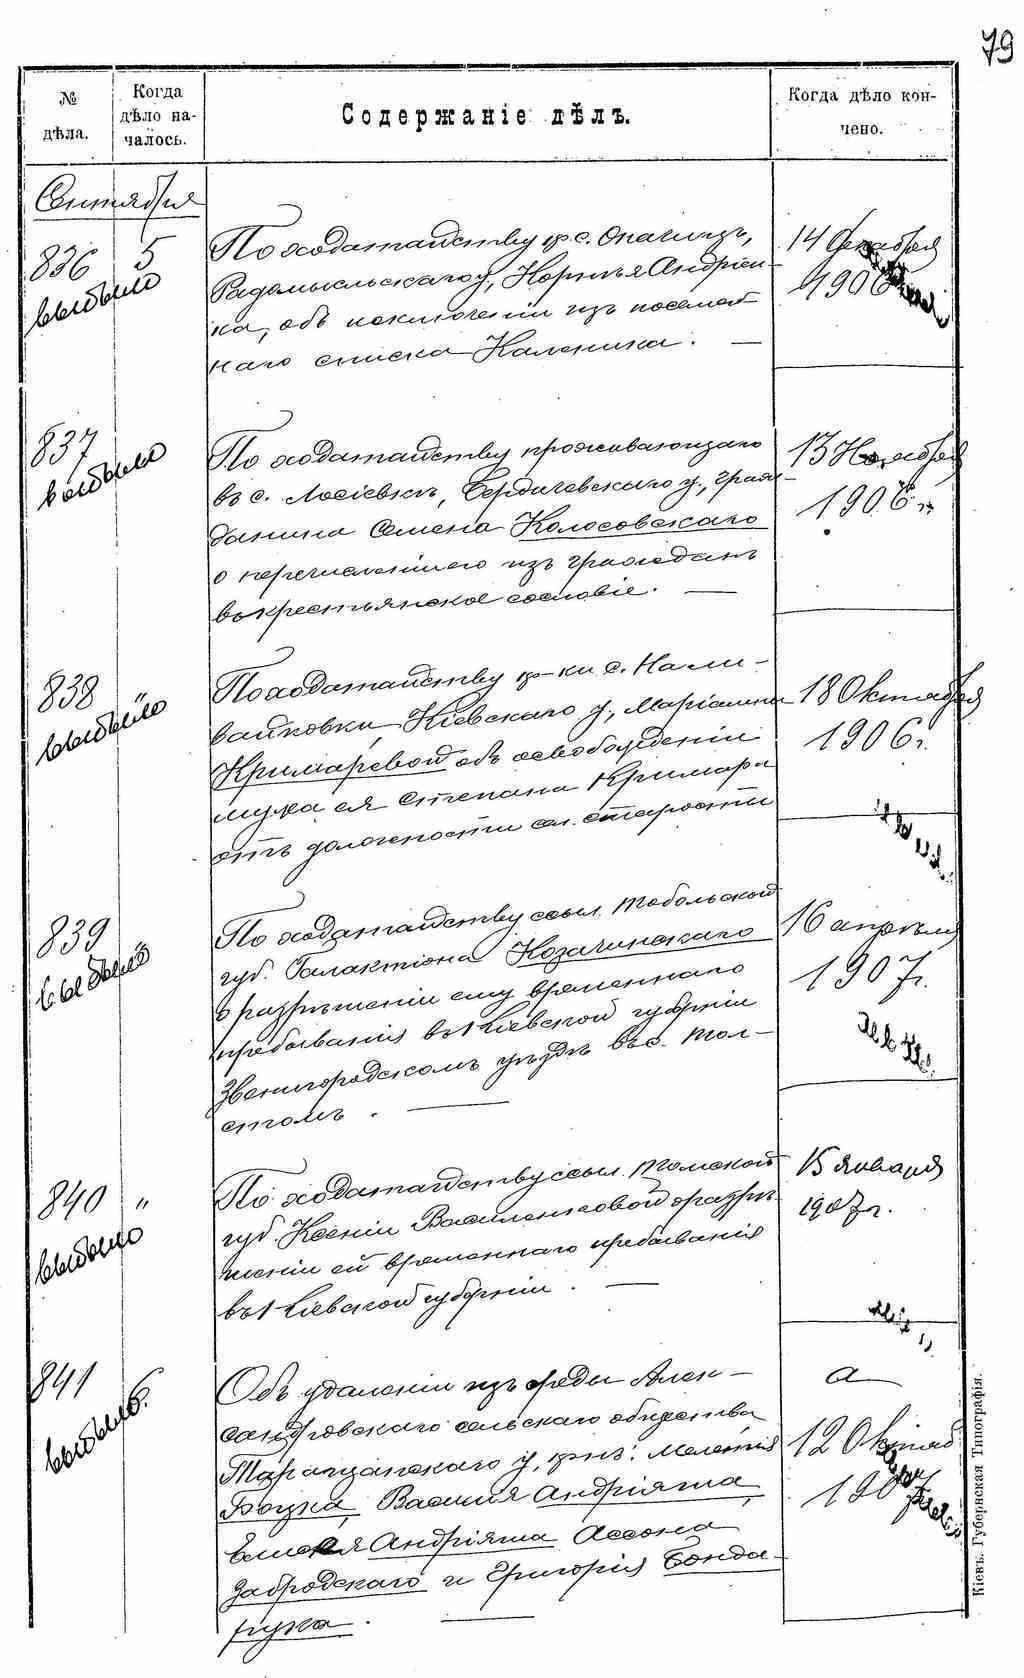 79
№ дѣла.
Когда дѣло на-
чалось.
Содержаніе дѣлъ.
Когда дѣло кон-
чено.
Сентября
836 5
выбыло
По ходатайству кр. с. Опачичъ,
Радомысльскаго у, Корнѣя Андріен-
ка, объ исключеніи изъ посемей-
наго списка Каленика. —
14 Декабря
1906
837
выбыло
По ходатайству проживающаго
въ с. Лосіевкѣ, Бердичевскаго у, граж-
данина Семена Колосовскаго
о перечисленіи его изъ гражданъ
въ крестьянское сословіе. —
13 Ноября
1906 г.
838 "
выбыло
По ходатайству кр-ки с. Нали-
вайковки, Кіевскаго у, Маріанны
Кримаревой объ освобожденіи
мужа ея Степана Кримара
отъ должности сел. старосты
18 Октября
1906 г.
839 "
выбыло
По ходатайству ссыл. Тобольской
губ. Галактіона Козачинскаго
о разрѣшеніи ему временнаго
пребыванія въ Кіевской губерніи
Звенигородскомъ уѣздѣ въ с. Тол-
стомъ. —
16 апрѣля
1907 г.
840 "
выбыло
По ходатайству ссыл. Томской
губ. Ксеніи Василенковой о разрѣ-
шеніи ей временнаго пребыванія
въ Кіевской губерніи. —
15 января
1907 г.
841 6.
выбыло
Объ удаленіи изъ среды Алек-
сандровскаго сельскаго общества
Таращанскаго у, крнъ: Мелетія
Боцка, Василія Андріяша,
Елисея Андріяша Ассона
Забродскаго и Григорія Бонда-
рука. —
а
12 Октяб
190
Кіевъ. Губернская Типографія.